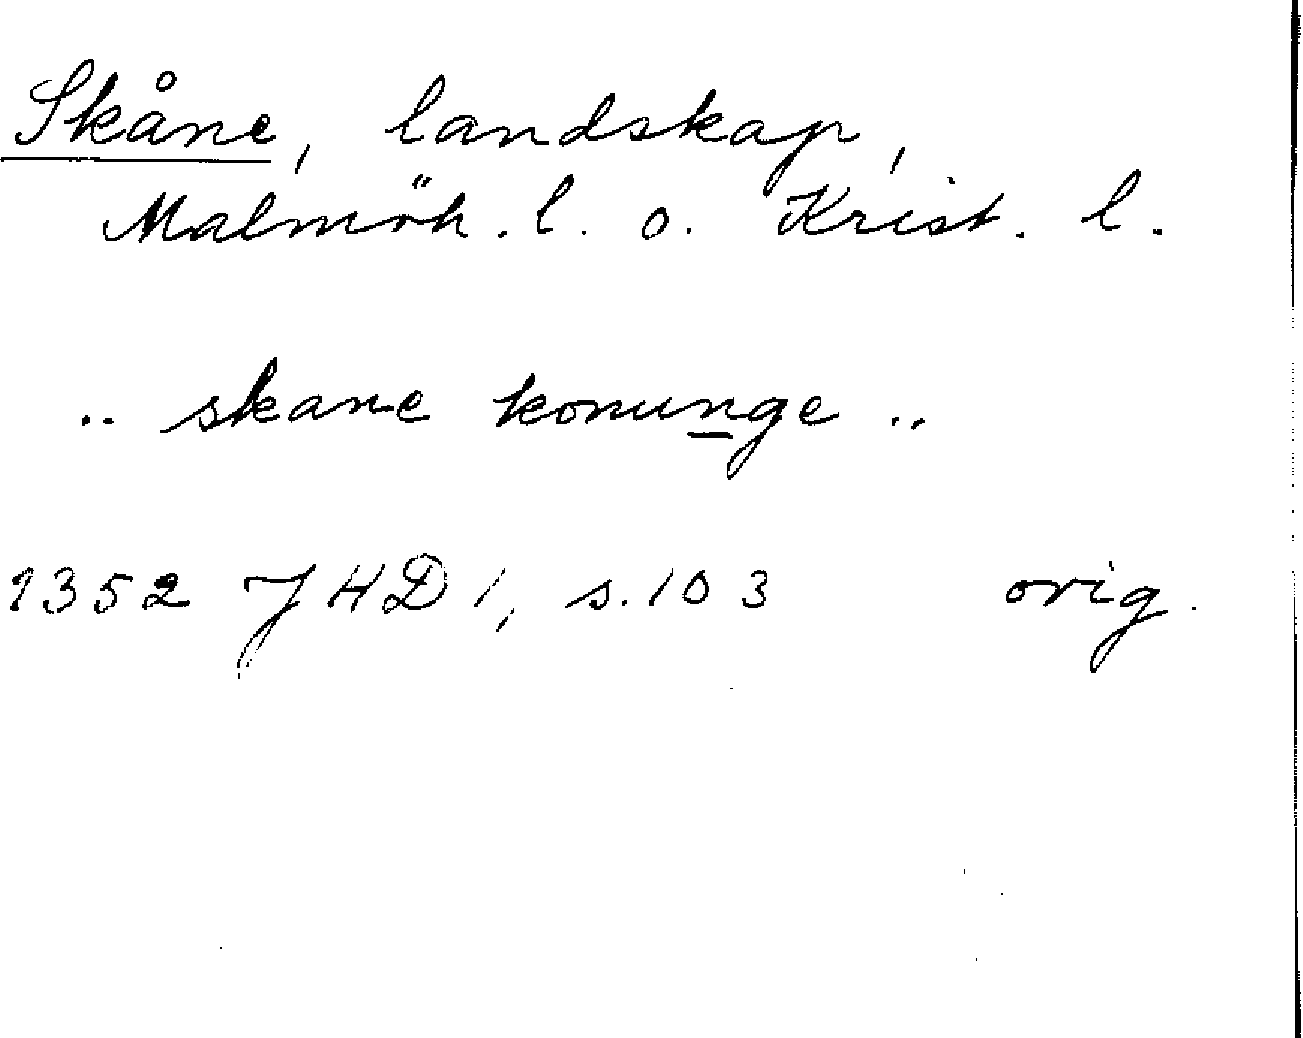 Skåne, landskap,
Malmöh. l. o. Krist. l.
.. skane konunge ..
1352 JHD 1, s. 103 orig.